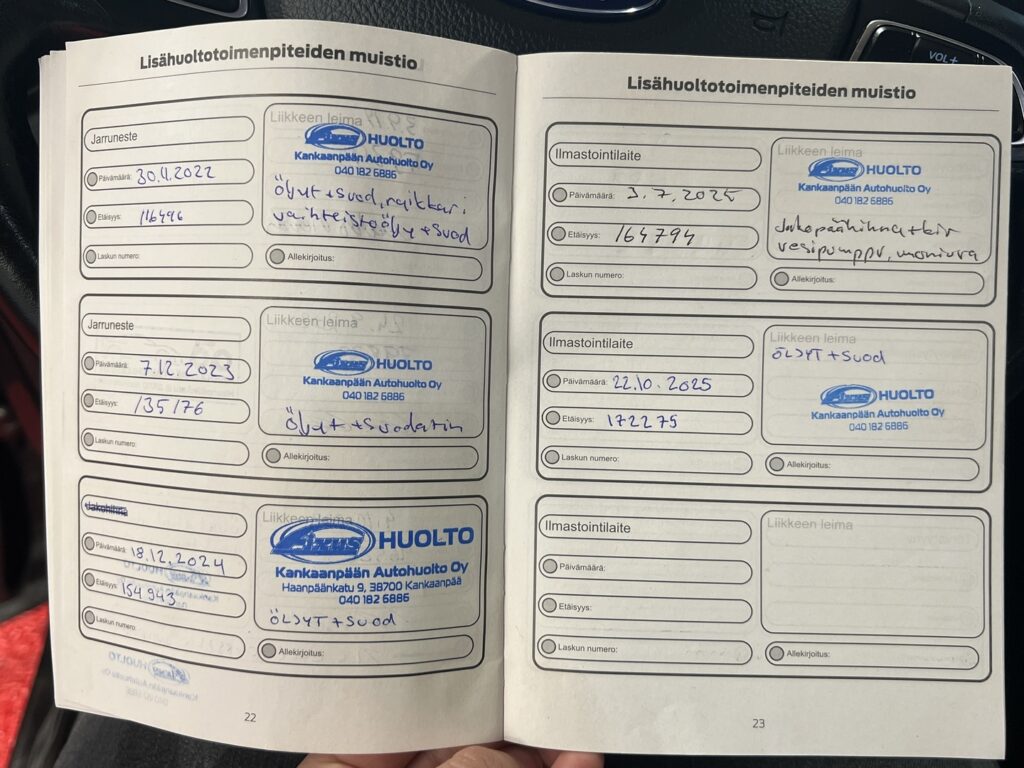 VOL+
Lisähuoltotoimenpiteiden muistio
Jarruneste
Päivämäärä: 30.11.2022
Etäisyys: 116496
Laskun numero:
Liikkeen leima
Fixus HUOLTO
Kankaanpään Autohuolto Oy
040 182 6886
Öljyt + suod, raikkari
vaihteistoöljy + suod
Allekirjoitus:
Jarruneste
Päivämäärä: 7.12.2023
Etäisyys: 135176
Laskun numero:
Liikkeen leima
Fixus HUOLTO
Kankaanpään Autohuolto Oy
040 182 6886
Öljyt + suodatin
Allekirjoitus:
Jakohihna
Päivämäärä: 18.12.2024
Etäisyys: 154943
Laskun numero:
Liikkeen leima
Fixus HUOLTO
Kankaanpään Autohuolto Oy
Haapäänkatu 9, 38700 Kankaanpää
040 182 6886
ÖLJYT + SUOD
Allekirjoitus:
22
Lisähuoltotoimenpiteiden muistio
Ilmastointilaite
Päivämäärä: 3.7.2025
Etäisyys: 164794
Laskun numero:
Liikkeen leima
Fixus HUOLTO
Kankaanpään Autohuolto Oy
040 182 6886
Jakopäähihna + kir
vesipumppu, moniura
Allekirjoitus:
Ilmastointilaite
Päivämäärä: 22.10.2025
Etäisyys: 172275
Laskun numero:
Liikkeen leima
ÖLJYT + SUOD
Fixus HUOLTO
Kankaanpään Autohuolto Oy
040 182 6886
Allekirjoitus:
Ilmastointilaite
Päivämäärä:
Etäisyys:
Laskun numero:
Liikkeen leima
Allekirjoitus:
23